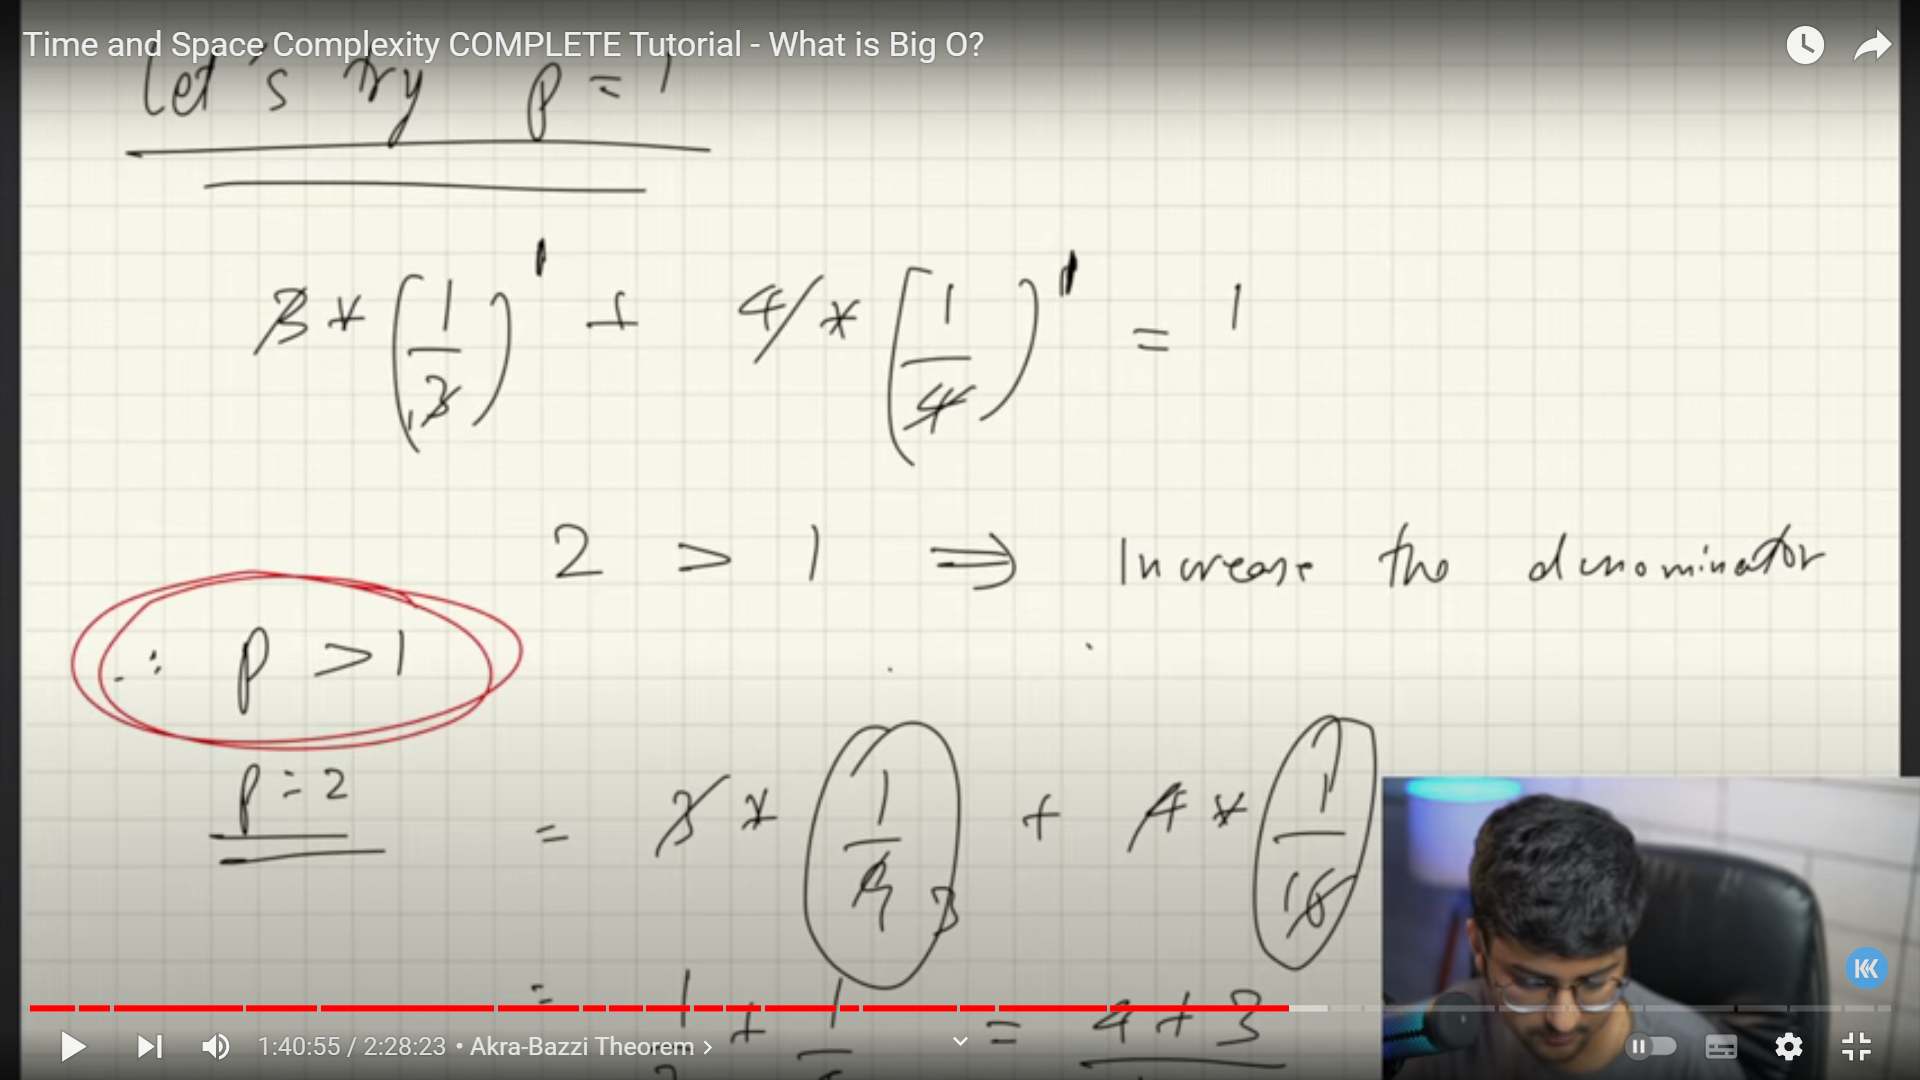 Time and Space Complexity COMPLETE Tutorial - What is Big O?
Let's try p = 1
3 * (1/3)^1 + 4 * (1/4)^1 = 1
2 > 1 ⇒ Increase the denominator
∴ p > 1
p = 2 = 3 * 1/9 3 + 4 * 1/16
= 1 + 1 = 4 + 3
1:40:55 / 2:28:23 • Akra-Bazzi Theorem >